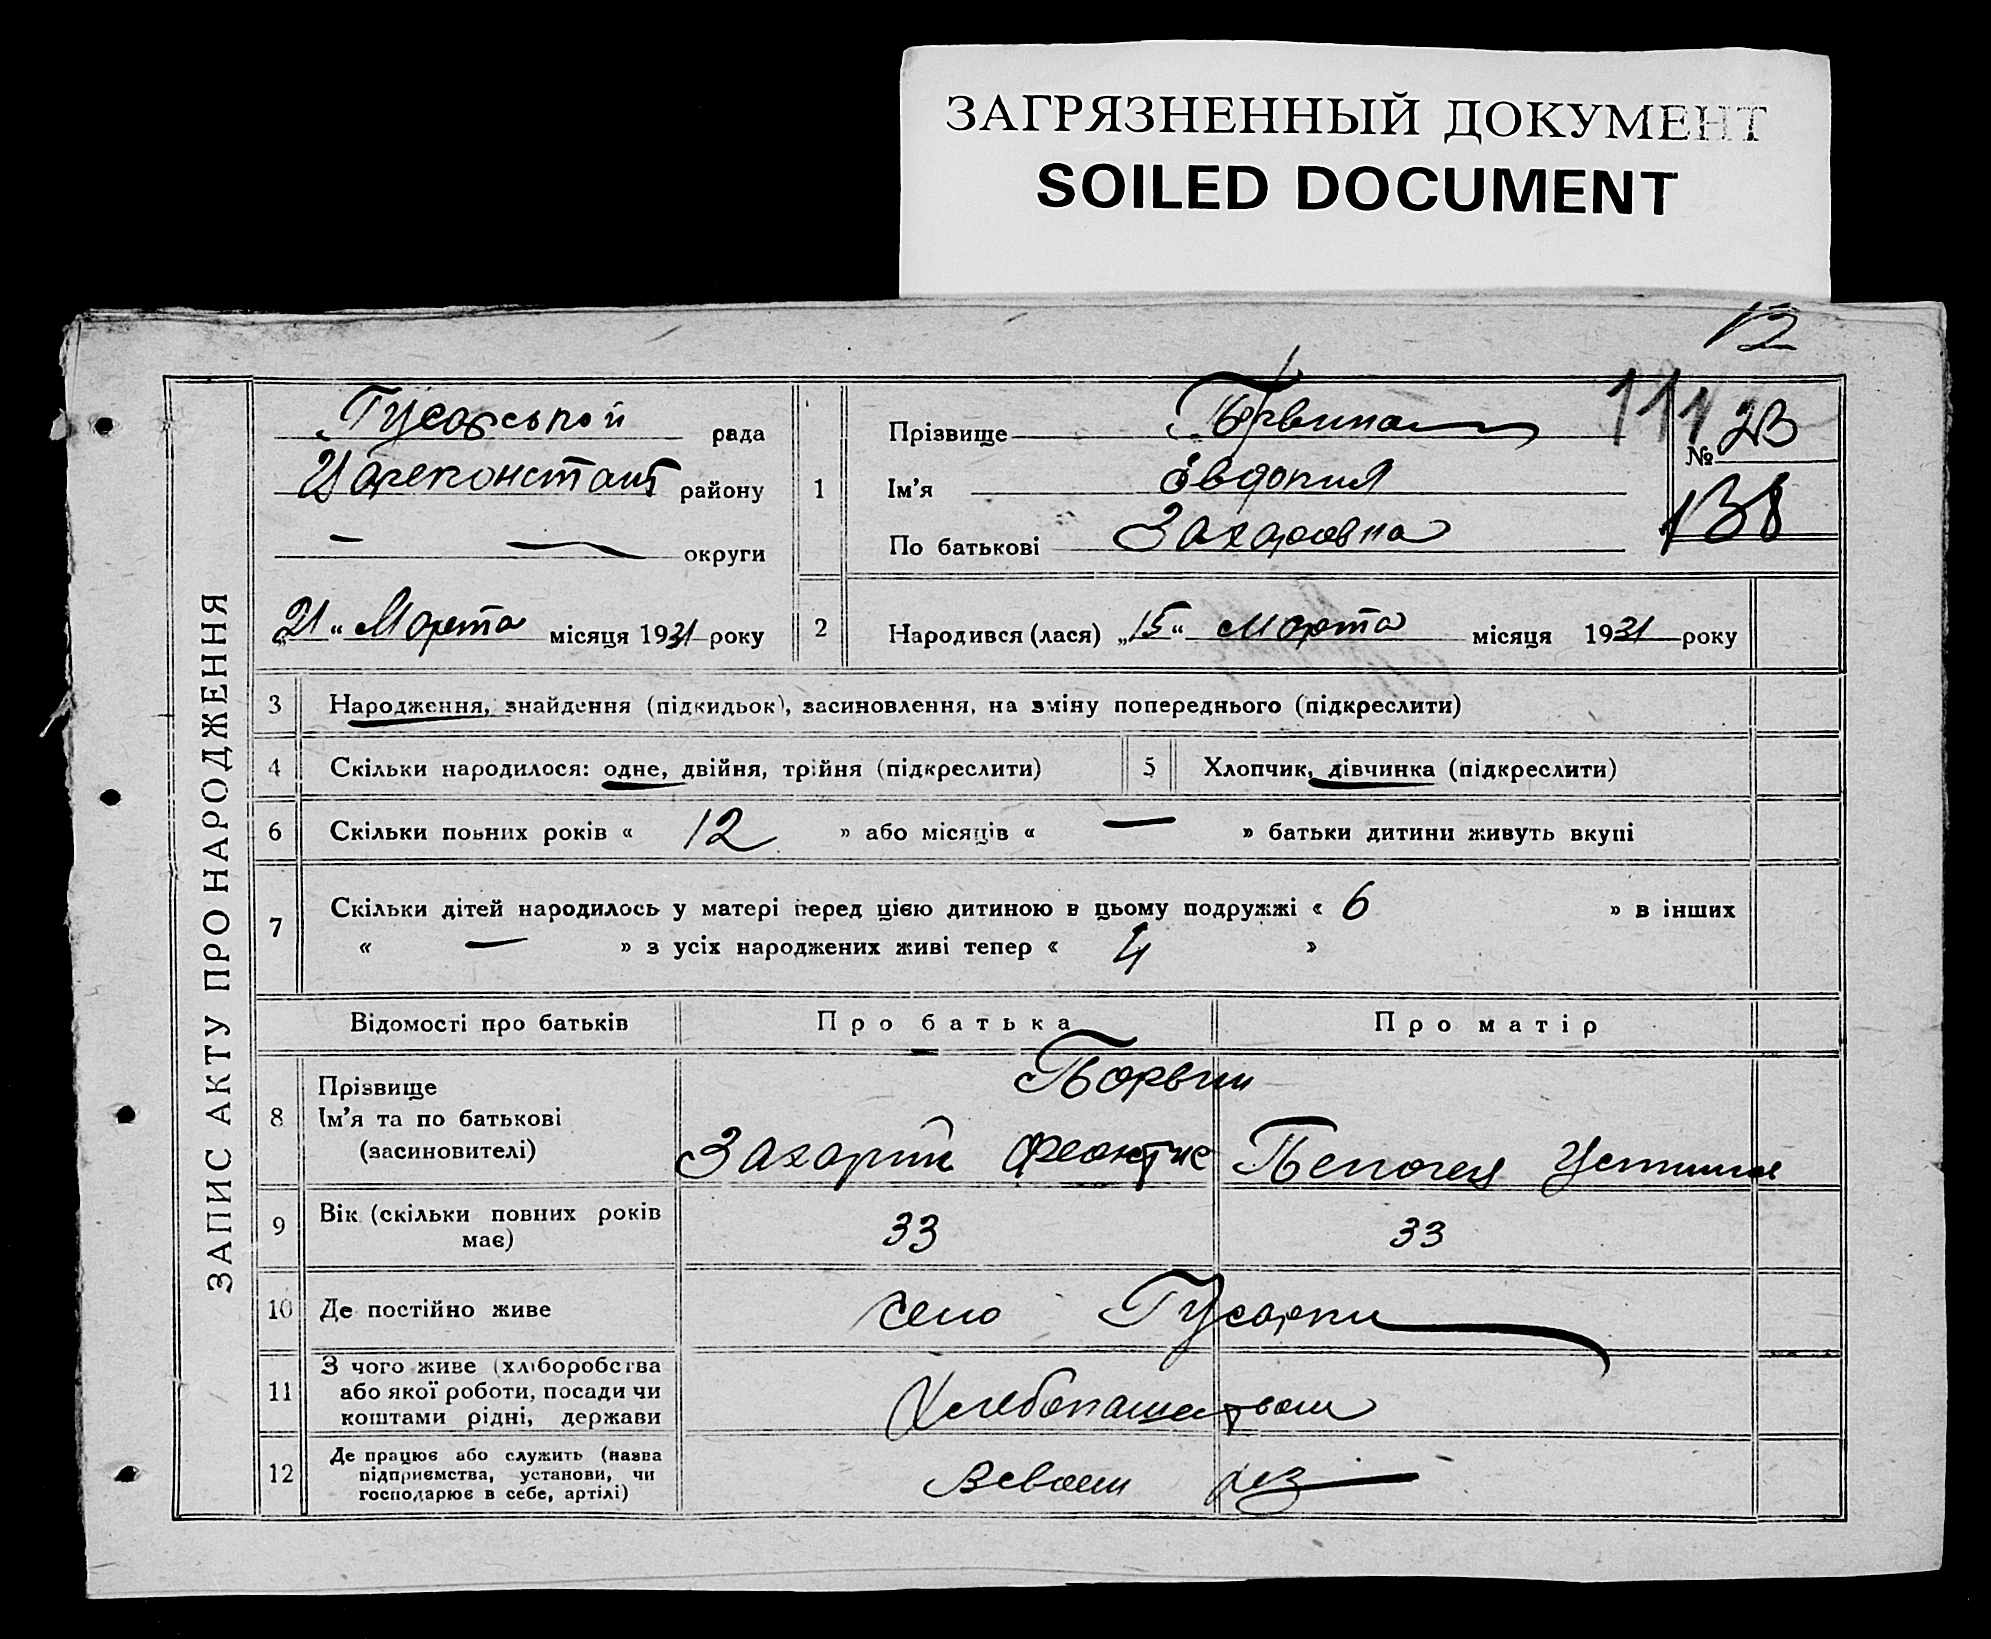 ЗАГРЯЗНЕННЫЙ ДОКУМЕНТ
SOILED DOCUMENT
12
ЗАПИС АКТУ ПРО НАРОДЖЕННЯ
Гусарської рада
Цареконстант району
— — округи
„21“ Марта місяця 1931 року
1
Прізвище
Ім’я Евдокия
По батькові Захаровна
111
№ 23
138
2 Народився (лася) „15“ Марта місяця 1931 року
3 Народження, знайдення (підкидьок), засиновлення, на зміну попереднього (підкреслити)
4 Скільки народилося: одне, двійня, трійня (підкреслити) 5 Хлопчик, дівчинка (підкреслити)
6 Скільки повних років « 12 » або місяців « — » батьки дитини живуть вкупі
7 Скільки дітей народилось у матері перед цією дитиною в цьому подружжі « 6 » в інших
« — » з усіх народжених живі тепер « 4 »
Відомості про батьків Про батька Про матір
8 Прізвище
Ім’я та по батькові
(засиновителі)
Захарий
9 Вік (скільки повних років має) 33 33
10 Де постійно живе село Гусарки
11 З чого живе (хліборобства
або якої роботи, посади чи
коштами рідні, держави
Хлебопашеством
12 Де працює або служить (назва
підприємства, установи, чи
господарює в себе, артілі)